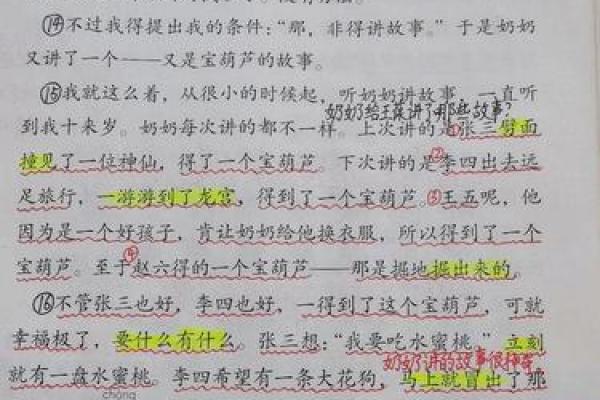 ⑭不过我得提出我的条件：“那，非得讲故事。”于是奶奶
又讲了一个——又是宝葫芦的故事。
⑮我就这么着，从很小的时候起，听奶奶讲故事，一直听
奶奶给王葆讲了那些故事？
到我十来岁。奶奶每次讲的都不一样。上次讲的是①张三劈面
撞见了一位神仙，得了一个宝葫芦。下次讲的是②李四出去远
足旅行，一游游到了龙宫，得到了一个宝葫芦。③王五呢，他
因为是一个好孩子，肯让奶奶给他换衣服，所以得到了一个
宝葫芦。至于④赵六得的一个宝葫芦——那是掘地掘出来的。
⑯不管张三也好，李四也好，一得到了这个宝葫芦，可就
幸福极了，要什么有什么。张三想：“我要吃水蜜桃。”立刻
奶奶讲的故事很神奇
就有一盘水蜜桃。李四希望有一条大花狗，马上就冒出了那
chóng